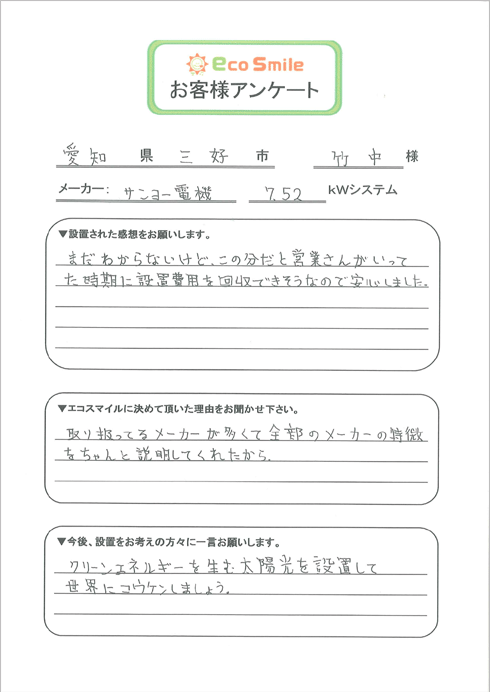 eco Smile
お客様アンケート
愛知 県 三好 市 竹中 様
メーカー: サンヨー電機 7.52 kWシステム
▼設置された感想をお願いします。
まだわからないけど、この分だと営業さんがいって
た時期に設置費用を回収できそうなので安心しました。
▼エコスマイルに決めて頂いた理由をお聞かせ下さい。
取り扱ってるメーカーが多くて全部のメーカーの特徴
をちゃんと説明してくれたから。
▼今後、設置をお考えの方々に一言お願いします。
クリーンエネルギーを生む太陽光を設置して
世界にコウケンしましょう。